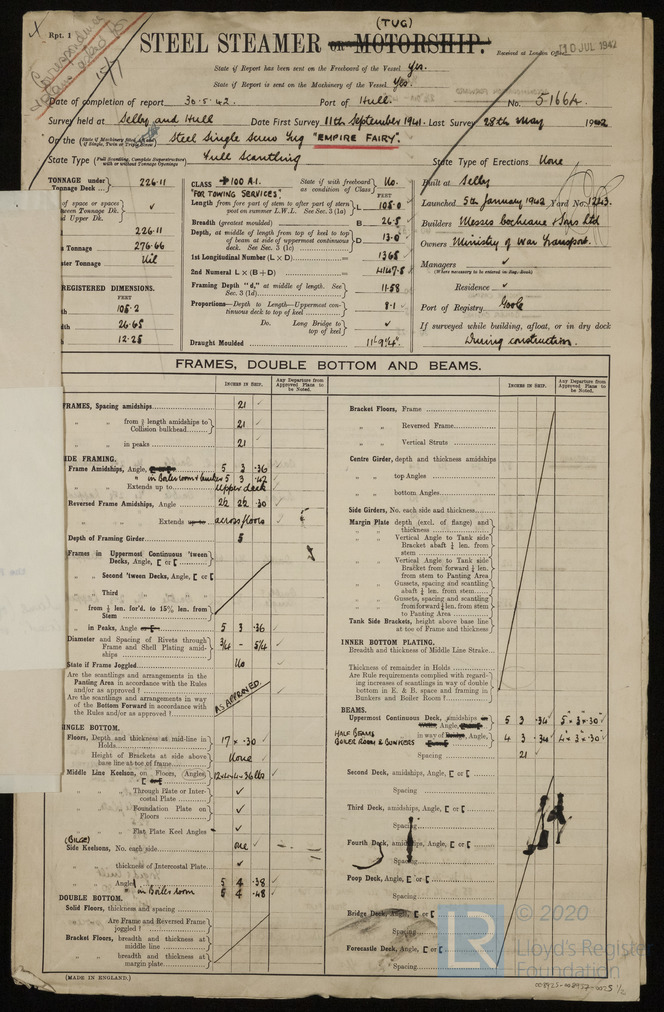 X Rpt. 1
(TUG)
STEEL STEAMER OR MOTORSHIP.
Received at London Office 10 JUL 1942
State if Report has been sent on the Freeboard of the Vessel Yes.
State if Report is sent on the Machinery of the Vessel Yes.
Date of completion of report 30.5.42. Port of Hull. No. 51664
Survey held at Selby and Hull Date First Survey 11th September 1941. Last Survey 28th May 1942
On the (State if Machinery fitted aft and if Single, Twin or Triple Screw) Steel Single Screw Tug "EMPIRE FAIRY".
State Type (Full Scantling, Complete Superstructure with or without Tonnage Openings) Full Scantling State Type of Erections None
TONNAGE under Tonnage Deck ... 226.11
of space or spaces
ween Tonnage Dk.
d Upper Dk. ✓
226.11
s Tonnage 276.66
ster Tonnage Nil
REGISTERED DIMENSIONS.
FEET
th 105.2
dth 26.65
h 12.25
CLASS +100 A.1. State if with freeboard as condition of Class No.
"FOR TOWING SERVICES"
FEET
Length from fore part of stem to after part of stern post on summer L.W.L. See Sec. 3 (1a) L 105.0
Breadth (greatest moulded) B 26.5
Depth, at middle of length from top of keel to top of beam at side of uppermost continuous deck. See Sec. 3 (1c) D 13.0
1st Longitudinal Number (L × D) = 1365
2nd Numeral L × (B + D) = 4147.5
Framing Depth "d," at middle of length. See Sec. 3 (1d) 11.58
Proportions—Depth to Length—Uppermost continuous deck to top of keel 8.1
Do. Long Bridge to top of keel ✓
Draught Moulded
Built at Selby
Launched 5th January 1942 Yard No. 1243.
Builders Messrs Cochrane & Sons Ltd
Owners Ministry of War Transport.
Managers ✓
(Where necessary to be entered in Reg. Book)
Residence ✓
Port of Registry Goole
If surveyed while building, afloat, or in dry dock
During construction.
FRAMES, DOUBLE BOTTOM AND BEAMS.
INCHES IN SHIP. Any Departure from Approved Plans to be Noted.
FRAMES, Spacing amidships 21 ✓
" " from ⅗ length amidships to Collision bulkhead 21 ✓
" " in peaks 21 ✓
IDE FRAMING.
Frame Amidships, Angle, 5 3 .36
" in Boiler room & bunkers 5 3 .42
" " Extends up to upper deck
Reversed Frame Amidships, Angle 2½ 2½ .30
" " Extends across floors
Depth of Framing Girder 5
Frames in Uppermost Continuous 'tween Decks, Angle, [ or [
" Second 'tween Decks, Angle, [ or [
" Third " " "
" from ⅕ len. for'd. to 15% len. from Stem
" in Peaks, Angle 5 3 .36
Diameter and Spacing of Rivets through Frame and Shell Plating amidships ¾ - 5¼
State if Frame Joggled No
Are the scantlings and arrangements in the Panting Area in accordance with the Rules and/or as approved ?
Are the scantlings and arrangements in way of the Bottom Forward in accordance with the Rules and/or as approved ?
AS APPROVED.
INGLE BOTTOM.
Floors, Depth and thickness at mid-line in Holds 17 × .30 ✓
Height of Brackets at side above base line at toe of frame None
Middle Line Keelson, on Floors, (Angles)
" " Through Plate or Intercostal Plate ✓
" " Foundation Plate on Floors ✓
" " Flat Plate Keel Angles ✓
(BILGE)
Side Keelsons, No. each side one ✓
" " thickness of Intercostal Plate ✓
" " Angles 5 4 .38
" in Boiler room 5 4 .48
DOUBLE BOTTOM.
Solid Floors, thickness and spacing
" " Are Frame and Reversed Frame joggled ?
Bracket Floors, breadth and thickness at middle line
" " breadth and thickness at margin plate
INCHES IN SHIP. Any Departure from Approved Plans to be Noted.
Bracket Floors, Frame
" " Reversed Frame
" " Vertical Struts
Centre Girder, depth and thickness amidships
" " top Angles
" " bottom Angles
Side Girders, No. each side and thickness
Margin Plate depth (excl. of flange) and thickness
" " Vertical Angle to Tank side Bracket abaft ¼ len. from stem
" " Vertical Angle to Tank side Bracket from forward ¼ len. from stem to Panting Area
" " Gussets, spacing and scantling abaft ¼ len. from stem
" " Gussets, spacing and scantling from forward ¼ len. from stem to Panting Area
Tank Side Brackets, height above base line at toe of Frame and thickness
INNER BOTTOM PLATING.
Breadth and thickness of Middle Line Strake
Thickness of remainder in Holds
Are Rule requirements complied with regarding increases of scantlings in way of double bottom in E. & B. space and framing in Bunkers and Boiler Room ?
BEAMS.
Uppermost Continuous Deck, amidships 5 3 .34 5 × 3 × .30 ✓
HALF BEAMS
BOILER ROOM & BUNKERS in way of Angle, 4 3 .34 4 × 3 × .30 ✓
Spacing 21 ✓
Second Deck, amidships, Angle, [ or [
Spacing
Third Deck, amidships, Angle, [ or [
Spacing
Fourth Deck, amidships, Angle, [ or [
Spacing
Poop Deck, Angle, [ or [
Spacing
Bridge Deck, Angle, [ or [
Spacing
Forecastle Deck, Angle, [ or [
Spacing
(MADE IN ENGLAND.)
LR © 2020
Lloyd's Register
Foundation
008925-008937-0025 1/2